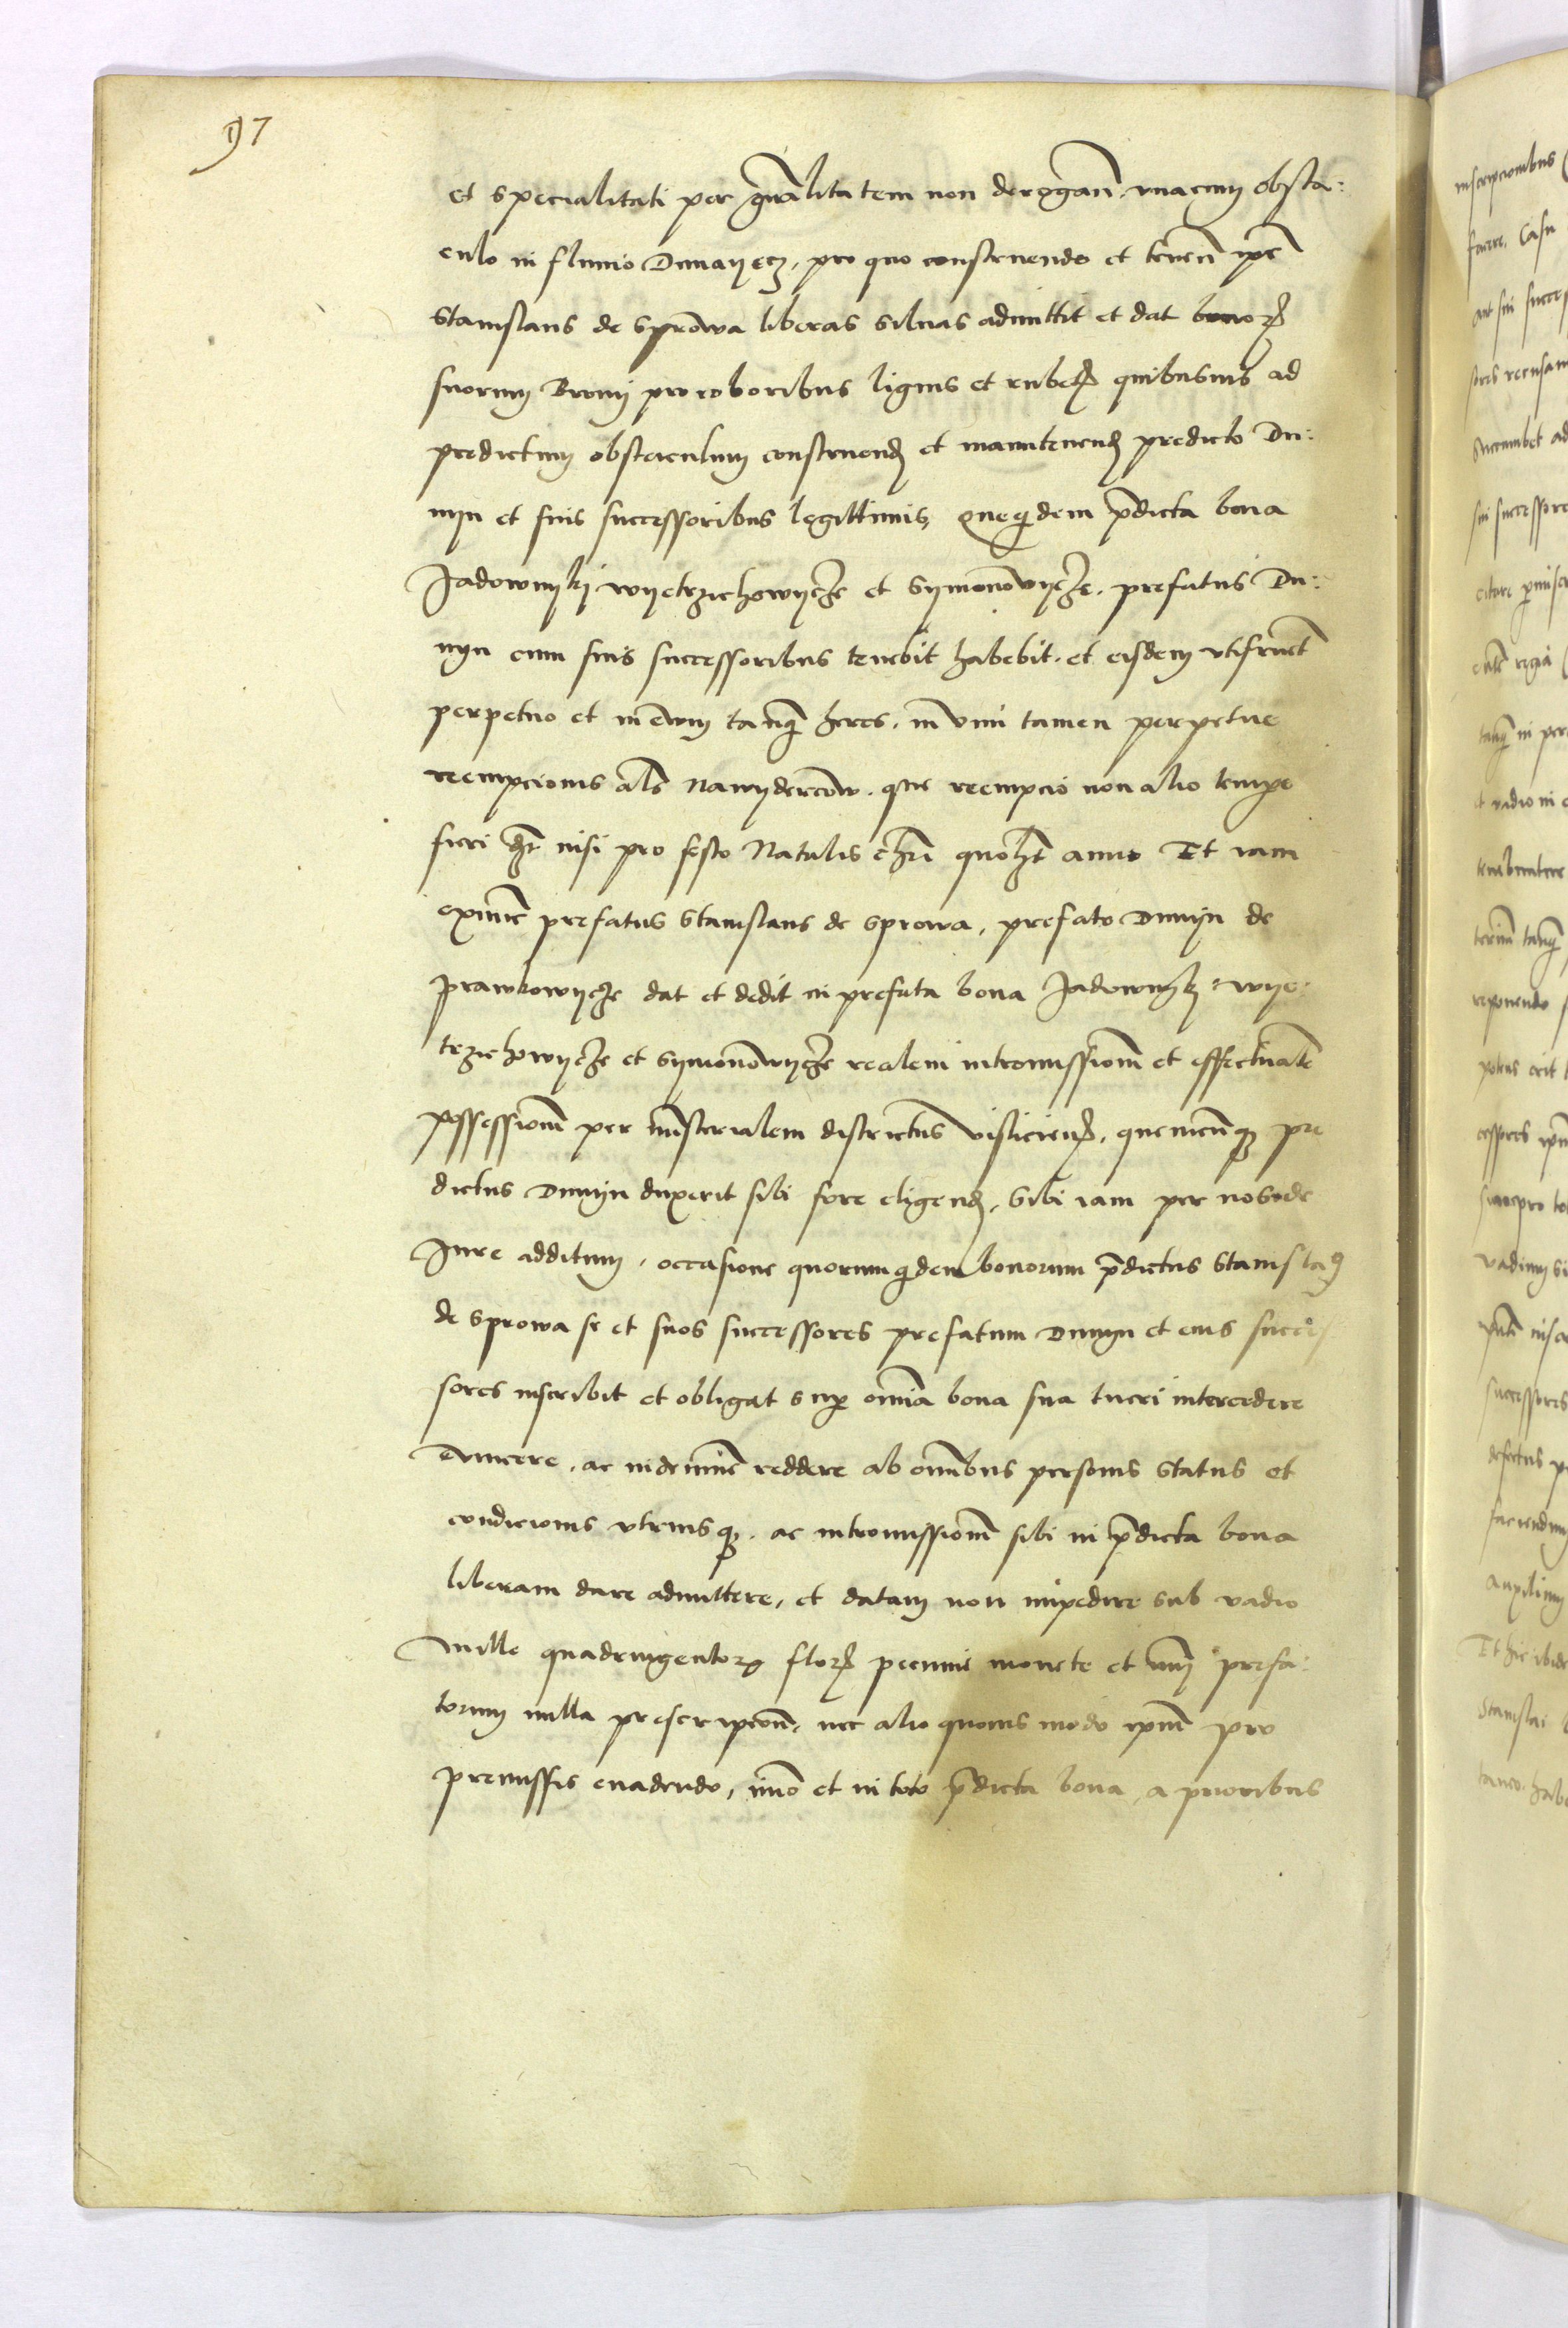 97
et specialitati per gnalitatem non derogan. vnacum obsta:
culo in fluuio Dunayecz, pro quo construendo et tenen ipse
Stanislaus de Sprowa liberas siluas admittit et dat bonor
suorum Brony pro roboribus lignis et rubet quibusuis ad
predictum obstaculum construend et manutenend predicto Du:
nyn et suis successoribus legittimis, quequidem pdicta bona
Jadowniky wyetrzichowycze et Symonowycze. prefatus Du:
nyn cum suis successoribus tenebit habebit. et eisdem vtifruet
perpetuo et in ewm tanq heres. in vim tamen perpetue
reempcionis als nawyderzcow. que reempcio non alio tempe
fieri dt nisi pro festo Natalis Chri quolt anno Et iam
exnunc prefatus Stanislaus de Sprowa, prefato Dunyn de
prawkowycze dat et dedit in prefata bona Jadownyky wye:
trzichowycze et Symonowycze realem intromissionem et effectualem
possessionem per ministerialem districtus Visliciens, quemcunq pre
dictus Dunyn duxerit sibi fore eligend, sibi iam per nos de
Jure additum, occasione quorumquidem bonorum pdictus Stanislaus
de Sprowa se et suos successores prefatum Dunyn et eius succes
sores inscribit et obligat sup omnia bona sua tueri intercedere
euincere, ac indemnem reddere ab omnibus personis status et
condicionis vtriusq. ac intromissionem sibi in pdicta bona
liberam dare admittere, et datam non impedire sub vadio
mille quadringentor flor pecunie monete et nui prefa:
torum nulla prescripcon, nec alio quouis modo ipm pro
premissis euadendo, imo et in toto pdicta bona a prioribus
inscripcionibus
facere. Casu
aut sui succes
sores recusare
Succumbet ad
sui successore
tanq in per
et vadio in
reponendo
potens erit
successores
defectus
faciendum
auxilium
Et hic ibidem
Stanislai